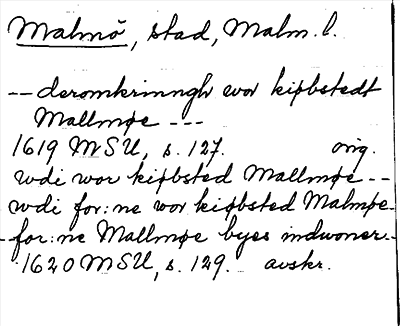 Malmö, stad, Malm. l.
-- deromkrinngh wor kiøbstedt
Mallmøe ---
1619 MSU, s. 127. orig.
wdi wor kiøbsted Mallmøe --
wdi for:ne wor kiøbsted Malmøe-
-for:ne Mallmøe byes indwoner--
1620 MSU, s. 129. avskr.